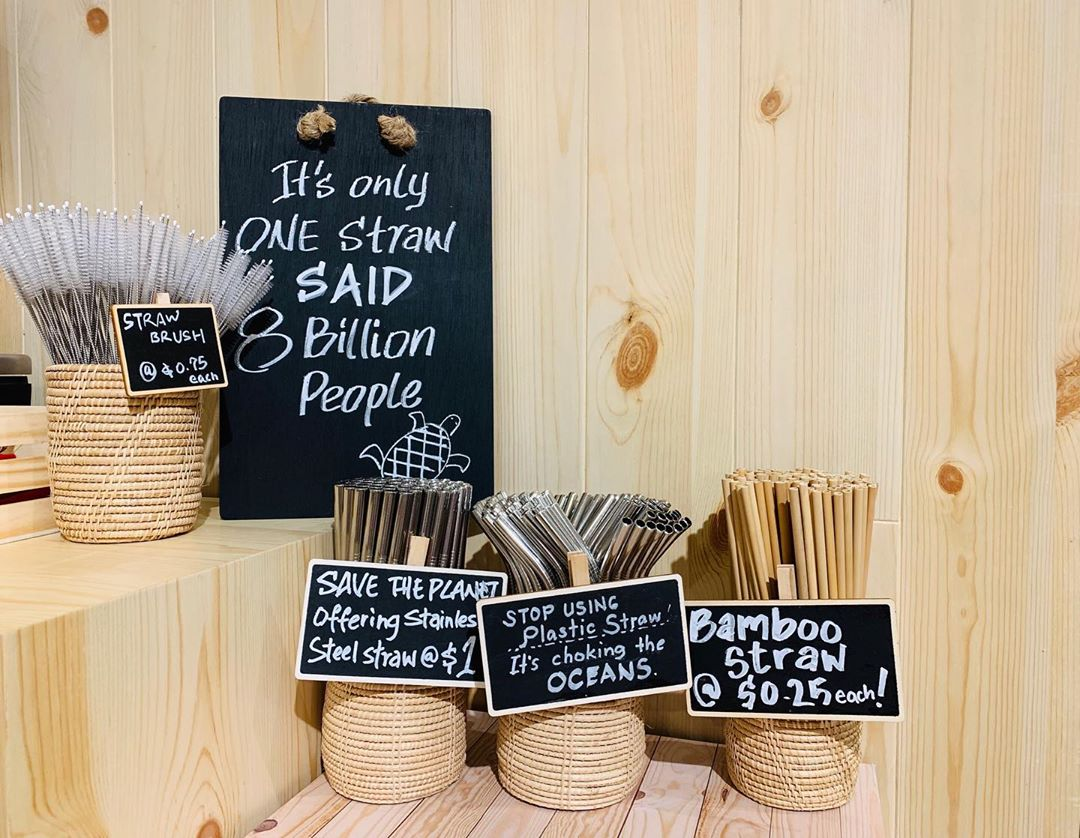 It's only
ONE Straw
SAID
8 Billion
People
STRAW
BRUSH
@ $0.75
each
SAVE THE PLANET
Offering Stainles
Steel straw @ $1
STOP USING
Plastic Straw!
It's choking the
OCEANS.
Bamboo
Straw
@ $0.25 each!